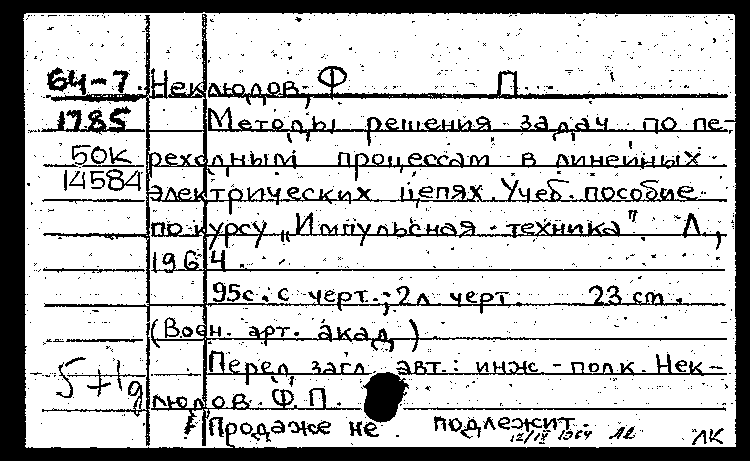 64-7 Неклюдов, Ф П.
1785 Методы решения задач по пе-
50к реходным процессам в линейных
14584 электрических цепях. Учеб. пособие
по курсу „Импульсная техника". Л.,
1964.
95с. с черт.; 2л черт. 23 cm.
(Воен. арт. акад.)
Перед загл авт.: инж-полк. Нек-
5+1g людов. Ф. П.
Продаже не подлежит.
1964 ЛК